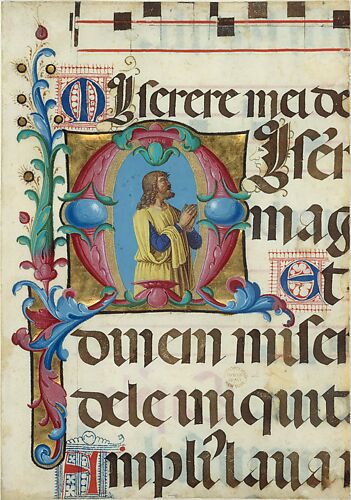 Miserere mei de
MIsēr
mag
Et
dinem miser
dele iniquit
Ampli' laua